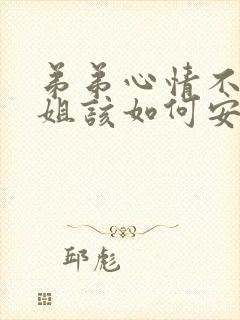 弟弟心情不
姐该如何安
邱彪